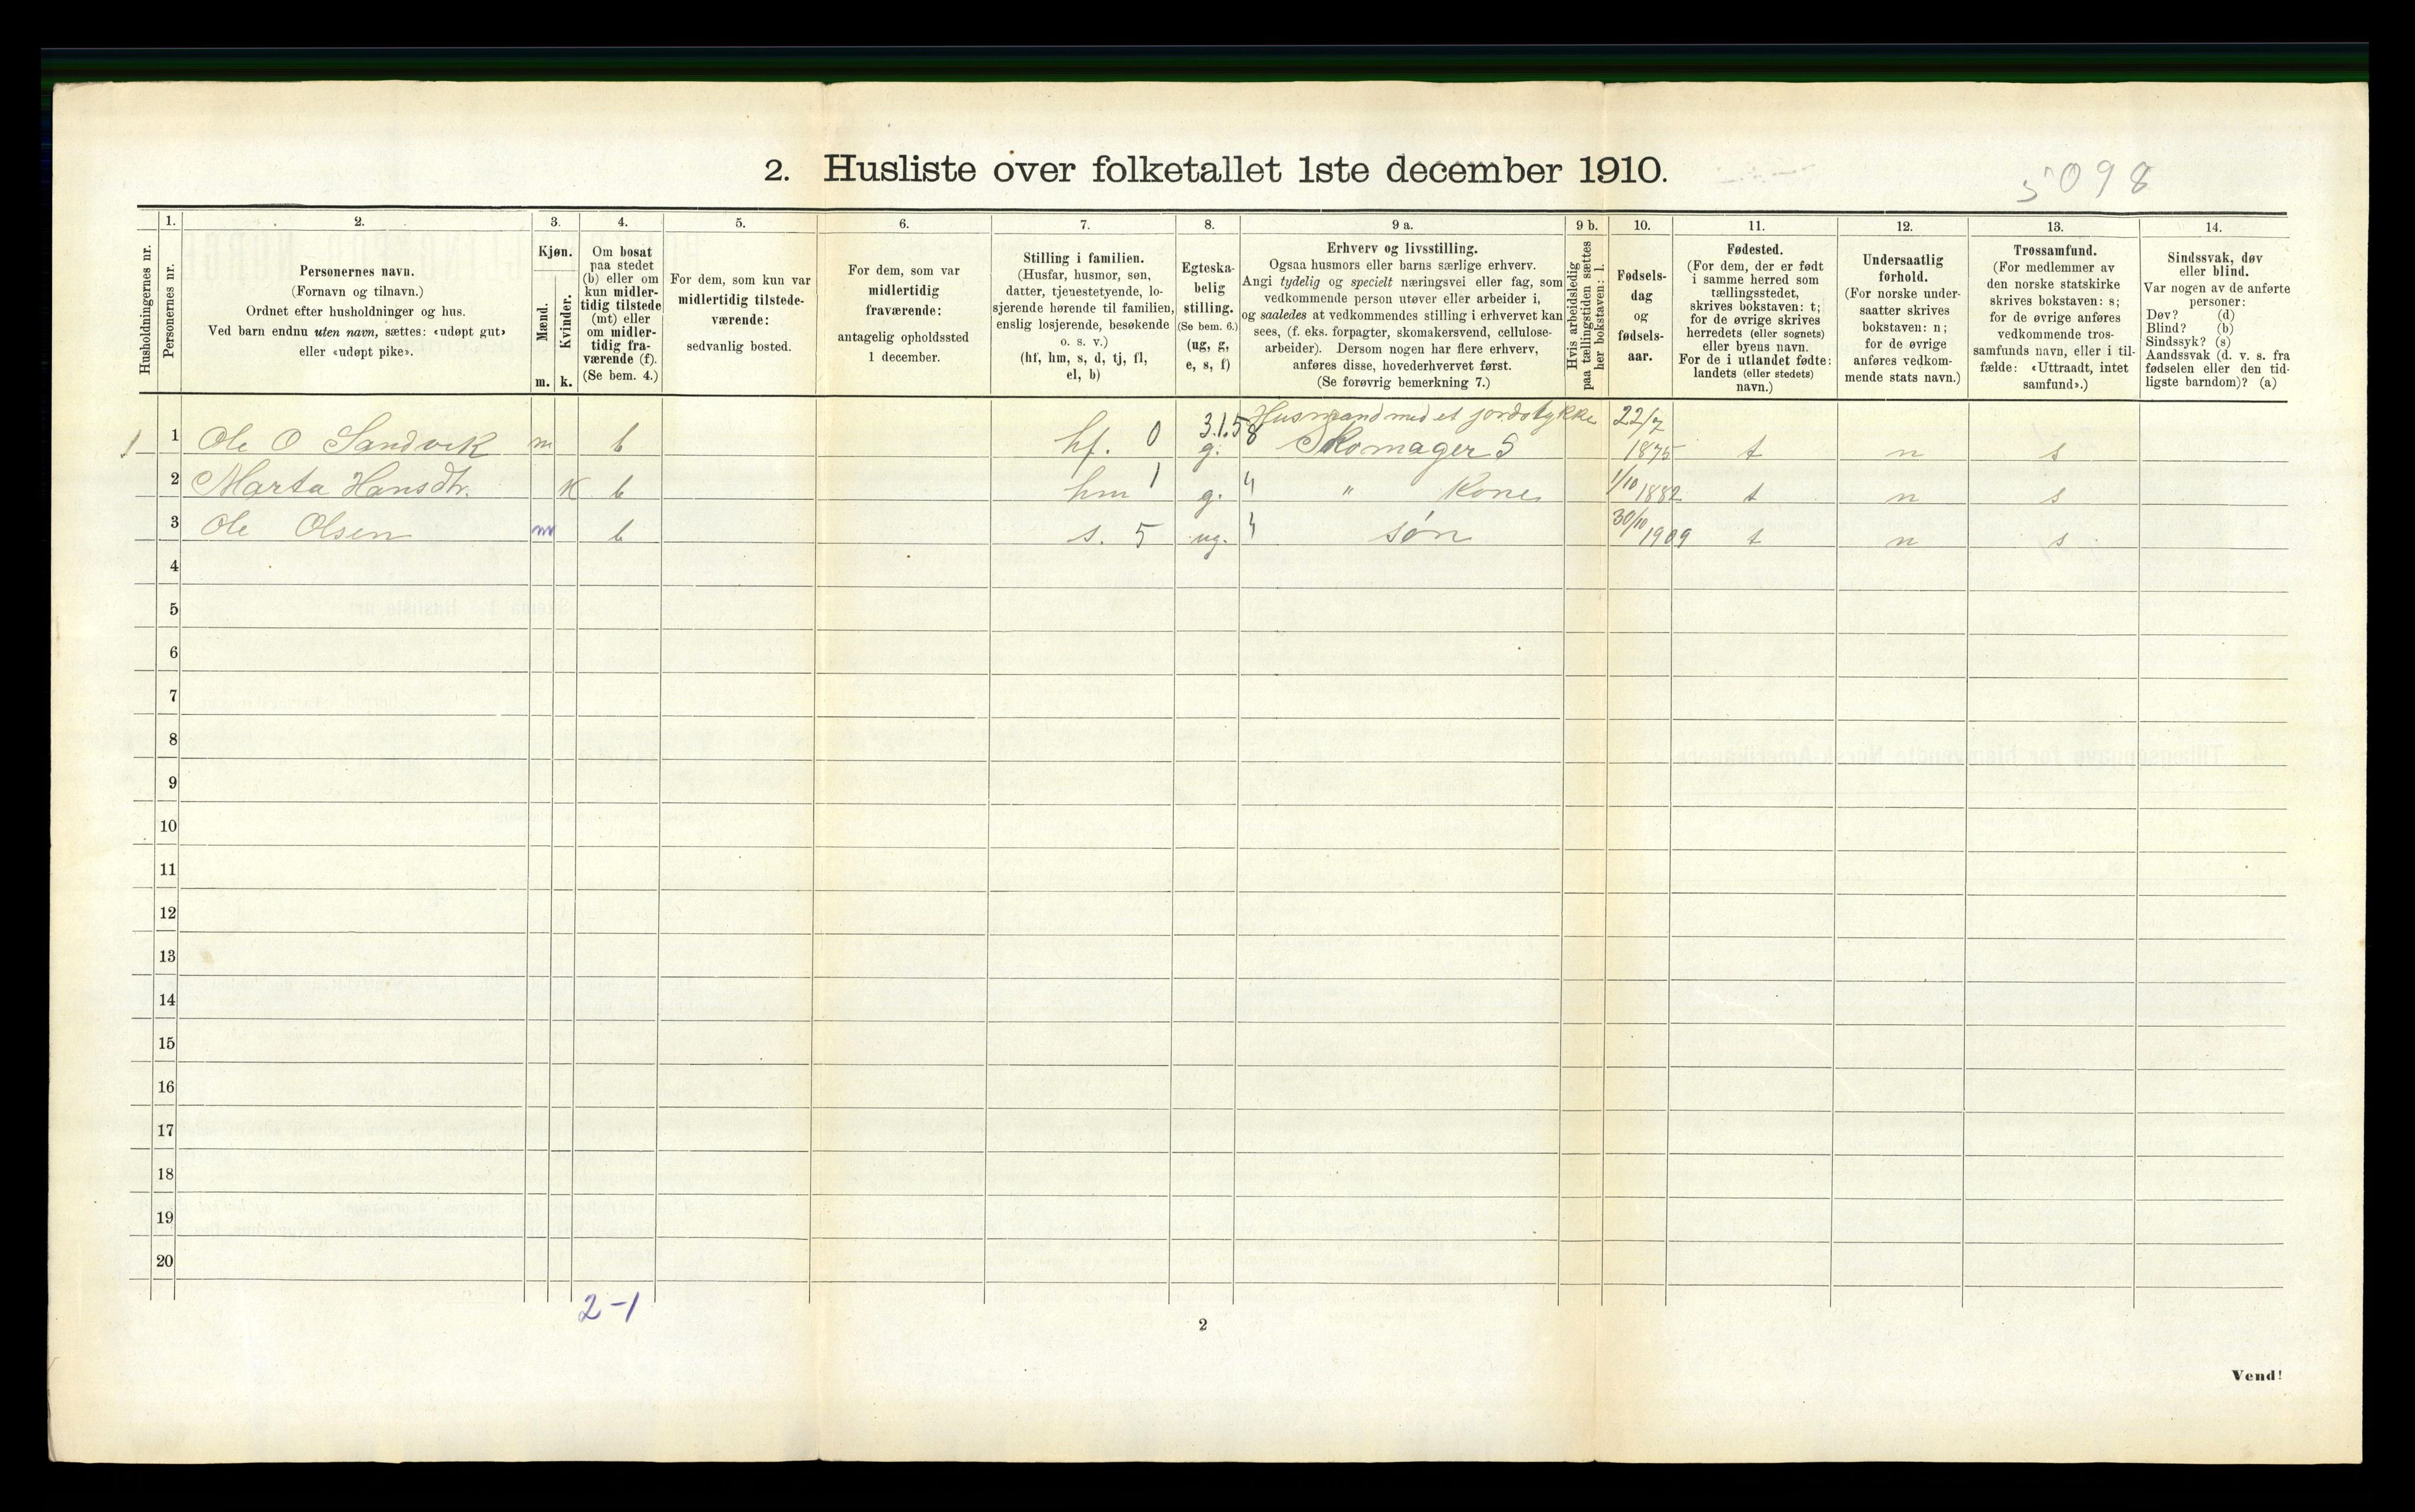 2. Husliste over folketallet 1ste december 1910.
5098
Husholdningernes nr.
1.
Personernes nr.
2.
Personernes navn.
(Fornavn og tilnavn.)
Ordnet efter husholdninger og hus.
Ved barn endnu uten navn, sættes: «udøpt gut»
eller «udøpt pike».
3.
Kjøn.
Mænd.
m.
Kvinder.
k.
4.
Om bosat
paa stedet
(b) eller om
kun midler-
tidig tilstede
(mt) eller
om midler-
tidig fra-
værende (f).
(Se bem. 4.)
5.
For dem, som kun var
midlertidig tilstede-
værende:
sedvanlig bosted.
6.
For dem, som var
midlertidig
fraværende:
antagelig opholdssted
1 december.
7.
Stilling i familien.
(Husfar, husmor, søn,
datter, tjenestetyende, lo-
sjerende hørende til familien,
enslig losjerende, besøkende
o. s. v.)
(hf, hm, s, d, tj, fl,
el, b)
8.
Egteska-
belig
stilling.
(Se bem. 6.)
(ug, g,
e, s, f)
9 a.
Erhverv og livsstilling.
Ogsaa husmors eller barns særlige erhverv.
Angi tydelig og specielt næringsvei eller fag, som
vedkommende person utøver eller arbeider i,
og saaledes at vedkommendes stilling i erhvervet kan
sees, (f. eks. forpagter, skomakersvend, cellulose-
arbeider). Dersom nogen har flere erhverv,
anføres disse, hovederhvervet først.
(Se forøvrig bemerkning 7.)
9 b.
Hvis arbeidsledig
paa tællingstiden sættes
her bokstaven: l.
10.
Fødsels-
dag
og
fødsels-
aar.
11.
Fødested.
(For dem, der er født
i samme herred som
tællingsstedet,
skrives bokstaven: t;
for de øvrige skrives
herredets (eller sognets)
eller byens navn.
For de i utlandet fødte:
landets (eller stedets)
navn.)
12.
Undersaatlig
forhold.
(For norske under-
saatter skrives
bokstaven: n;
for de øvrige
anføres vedkom-
mende stats navn.)
13.
Trossamfund.
(For medlemmer av
den norske statskirke
skrives bokstaven: s;
for de øvrige anføres
vedkommende tros-
samfunds navn, eller i til-
fælde: «Uttraadt, intet
samfund».)
14.
Sindssvak, døv
eller blind.
Var nogen av de anførte
personer:
Døv? (d)
Blind? (b)
Sindssyk? (s)
Aandssvak (d. v. s. fra
fødselen eller den tid-
ligste barndom)? (a)
3.1.58 Husmand med et jordstykke 22/7
1 1 Ole O Sandvik m b hf. 0 g. Skomager S 1875 t n s
2 Marta Hansdtr. K b hm 1 g. " Kone 1/10 1882 t n s
3 Ole Olsen m b s. 5 ug. søn 30/10 1909 t n s
4
5
6
7
8
9
10
11
12
13
14
15
16
17
18
19
20
2-1
2
Vend!